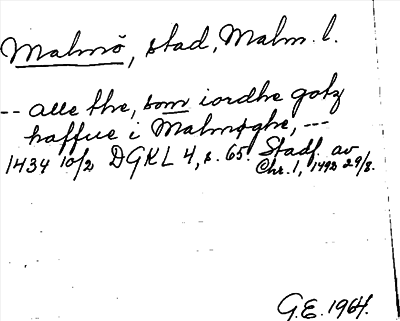 Malmö, stad, Malm. l.
-- alle the, som iordhe gotz
haffue i Malmøghe, ---
1434 10/2 DGKL 4, s. 65. Stadf. av
Chr. 1, 1492 29/8.
G.E. 1964.